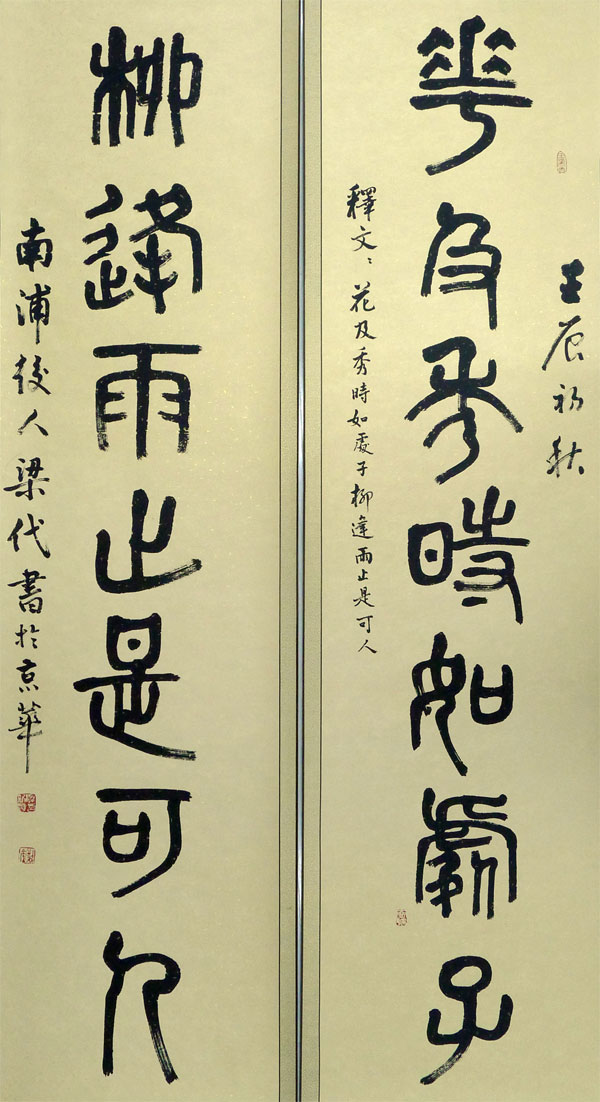 壬辰初秋
華及秀時如處子
釋文：花及秀時如處子柳逢雨止是可人
柳逢雨止是可人
南浦後人梁代書於京華